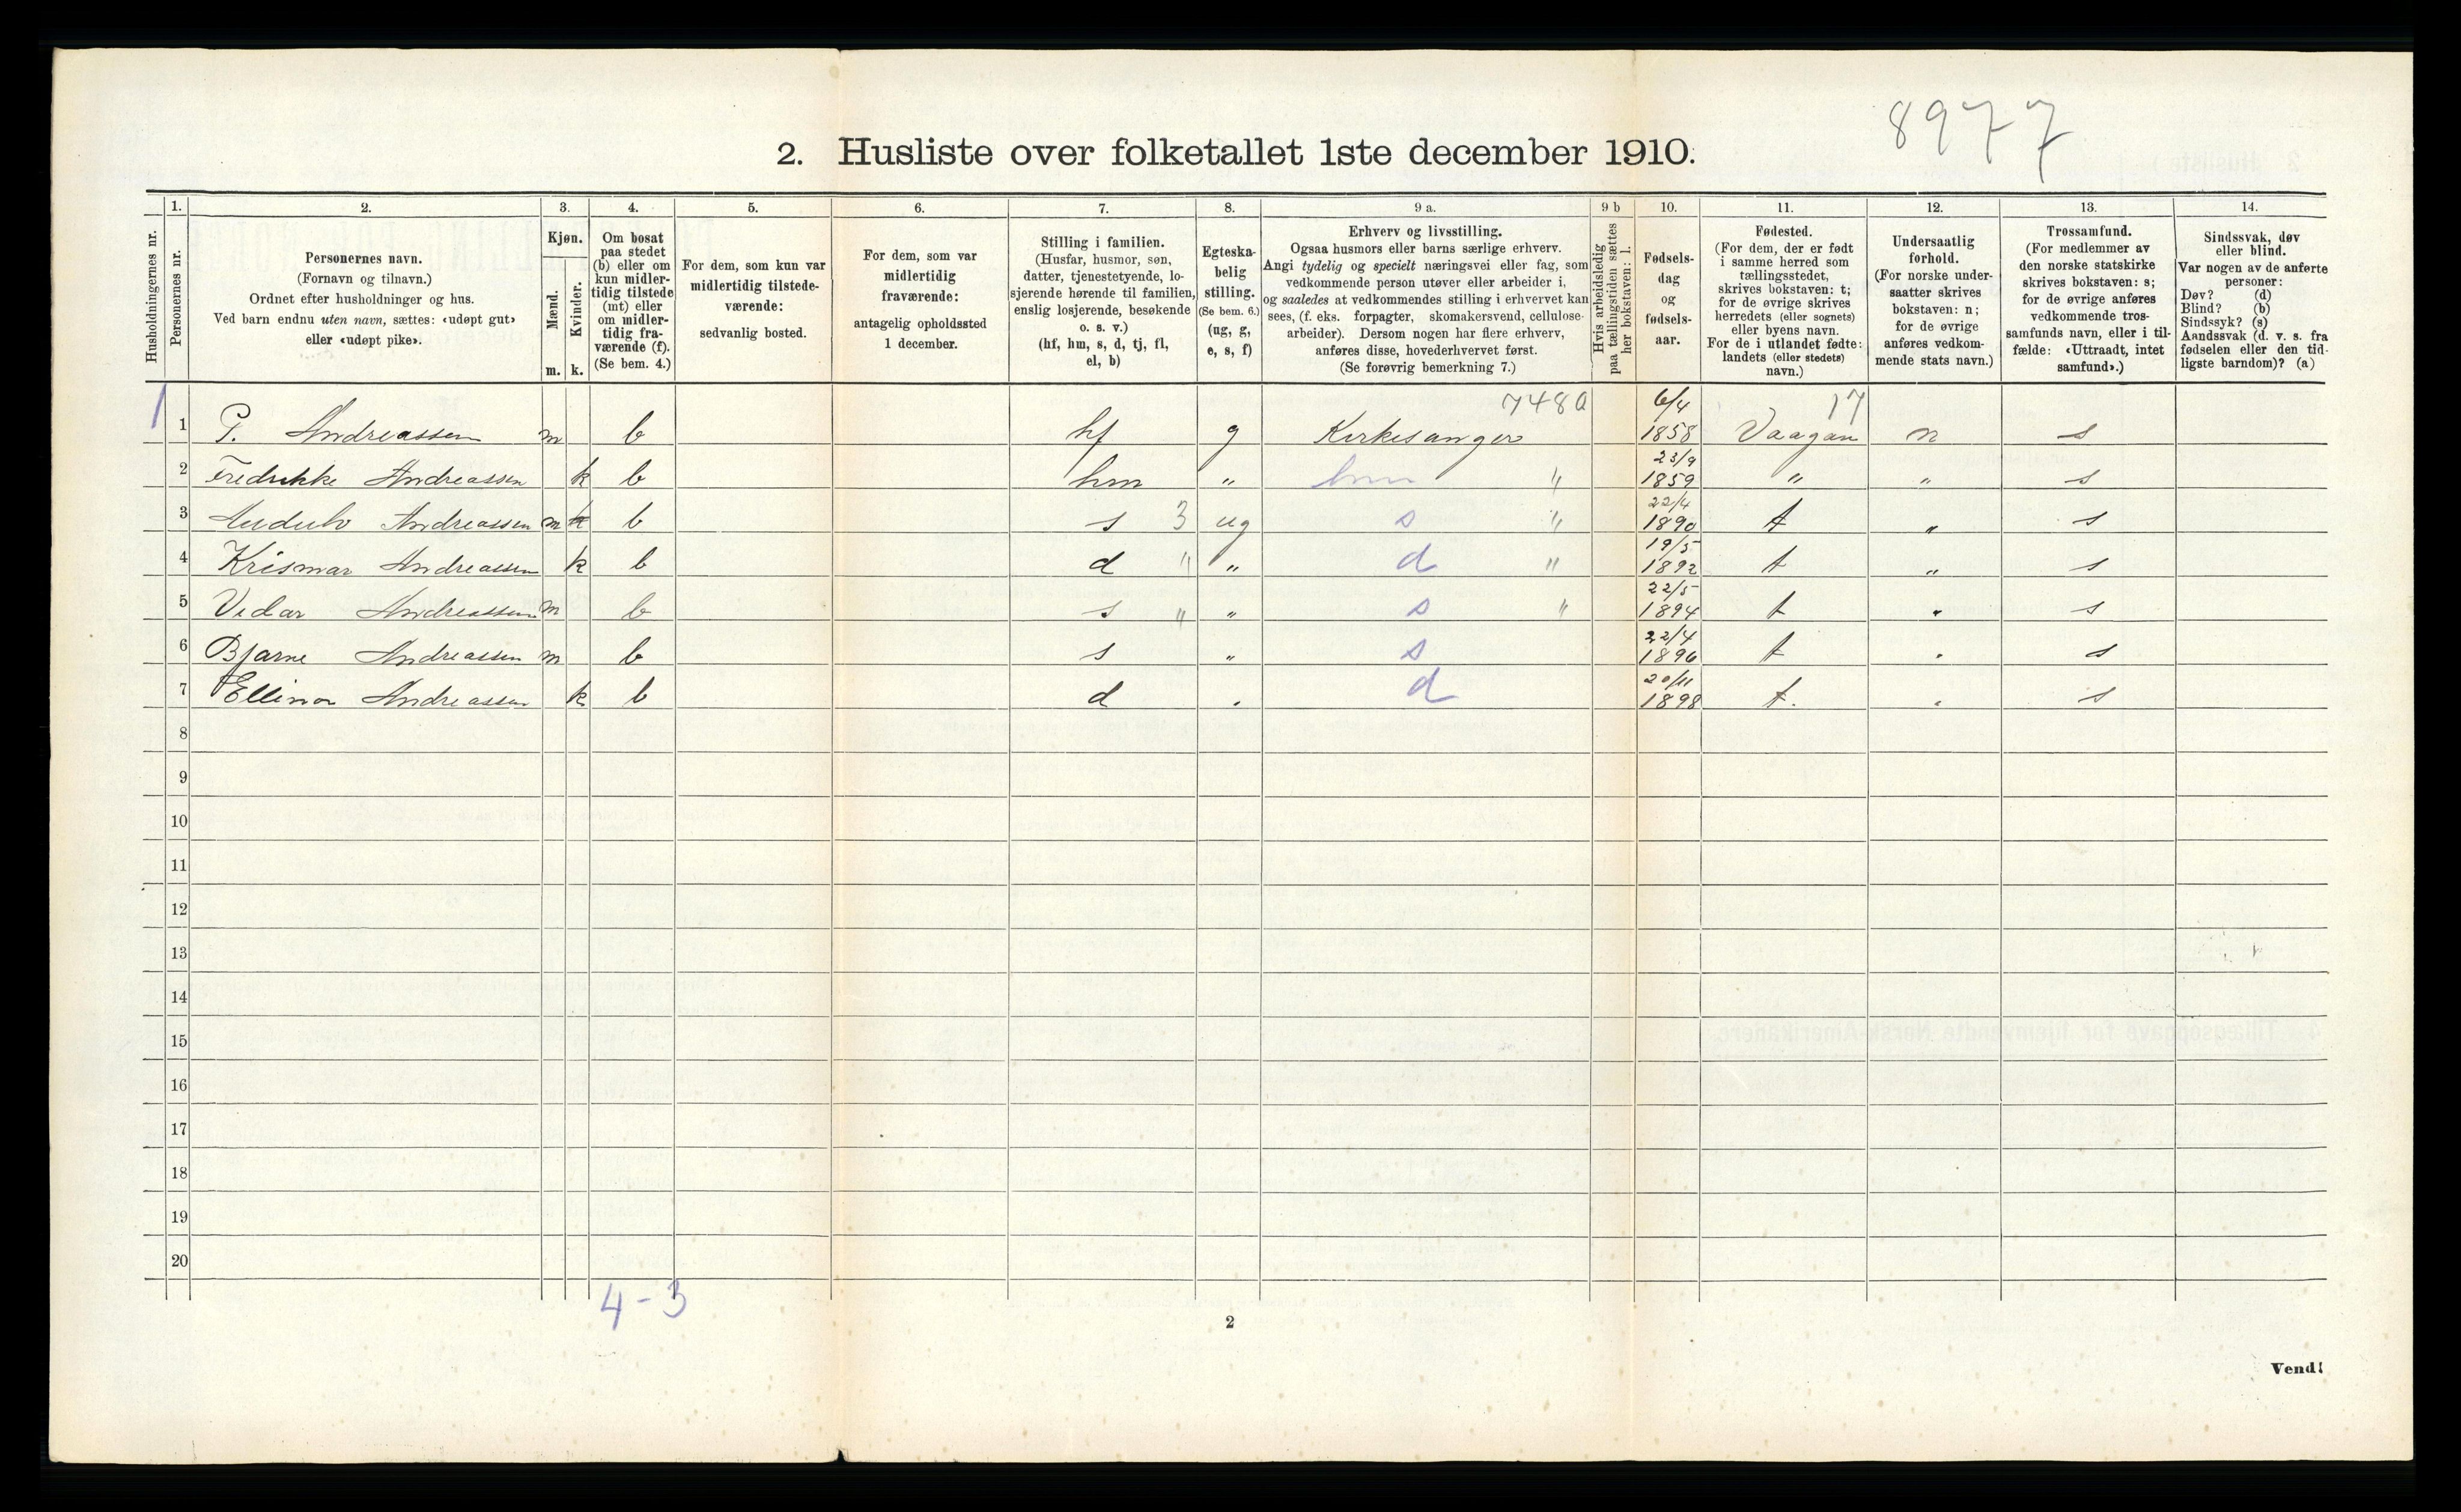 8977
2. Husliste over folketallet 1ste december 1910.
Husholdningernes nr.
1.
Personernes nr.
2.
Personernes navn.
(Fornavn og tilnavn.)
Ordnet efter husholdninger og hus.
Ved barn endnu uten navn, sættes: «udøpt gut»
eller «udøpt pike».
3.
Kjøn.
Mænd.
Kvinder.
m. k.
4.
Om bosat
paa stedet
(b) eller om
kun midler-
tidig tilstede
(mt) eller
om midler-
tidig fra-
værende (f).
(Se bem. 4.)
5.
For dem, som kun var
midlertidig tilstede-
værende:
sedvanlig bosted.
6.
For dem, som var
midlertidig
fraværende:
antagelig opholdssted
1 december.
7.
Stilling i familien.
(Husfar, husmor, søn,
datter, tjenestetyende, lo-
sjerende hørende til familien,
enslig losjerende, besøkende
o. s. v.)
(hf, hm, s, d, tj, fl,
el, b)
8.
Egteska-
belig
stilling.
(Se bem. 6.)
(ug, g,
e, s, f)
9 a.
Erhverv og livsstilling.
Ogsaa husmors eller barns særlige erhverv.
Angi tydelig og specielt næringsvei eller fag, som
vedkommende person utøver eller arbeider i,
og saaledes at vedkommendes stilling i erhvervet kan
sees, (f. eks. forpagter, skomakersvend, cellulose-
arbeider). Dersom nogen har flere erhverv,
anføres disse, hovederhvervet først.
(Se forøvrig bemerkning 7.)
9 b
Hvis arbeidsledig
paa tællingstiden sættes
her bokstaven: l.
10.
Fødsels-
dag
og
fødsels-
aar.
11.
Fødested.
(For dem, der er født
i samme herred som
tællingsstedet,
skrives bokstaven: t;
for de øvrige skrives
herredets (eller sognets)
eller byens navn.
For de i utlandet fødte:
landets (eller stedets)
navn.)
12.
Undersaatlig
forhold.
(For norske under-
saatter skrives
bokstaven: n;
for de øvrige
anføres vedkom-
mende stats navn.)
13.
Trossamfund.
(For medlemmer av
den norske statskirke
skrives bokstaven: s;
for de øvrige anføres
vedkommende tros-
samfunds navn, eller i til-
fælde: «Uttraadt, intet
samfund».)
14.
Sindssvak, døv
eller blind.
Var nogen av de anførte
personer:
Døv? (d)
Blind? (b)
Sindssyk? (s)
Aandssvak (d. v. s. fra
fødselen eller den tid-
ligste barndom)? (a)
1 1 P. Andreassen m b hf g Kirkesanger 7480 6/4 1858 Vaagan 17 n s
2 Fredrikke Andreassen k b hm " hm " 23/9 1859 " " s
3 Andreassen m b s 3 ug s " 22/4 1890 t " s
4 Krismar Andreassen k b d " " d " 19/5 1892 t " s
5 Vidar Andreassen m b s " " s " 22/5 1894 t " s
6 Bjarne Andreassen m b s " s 22/4 1896 t " s
7 Ellinor Andreassen k b d " d 20/11 1898 t. " s
8
9
10
11
12
13
14
15
16
17
18
19
20
4-3
2
Vend!